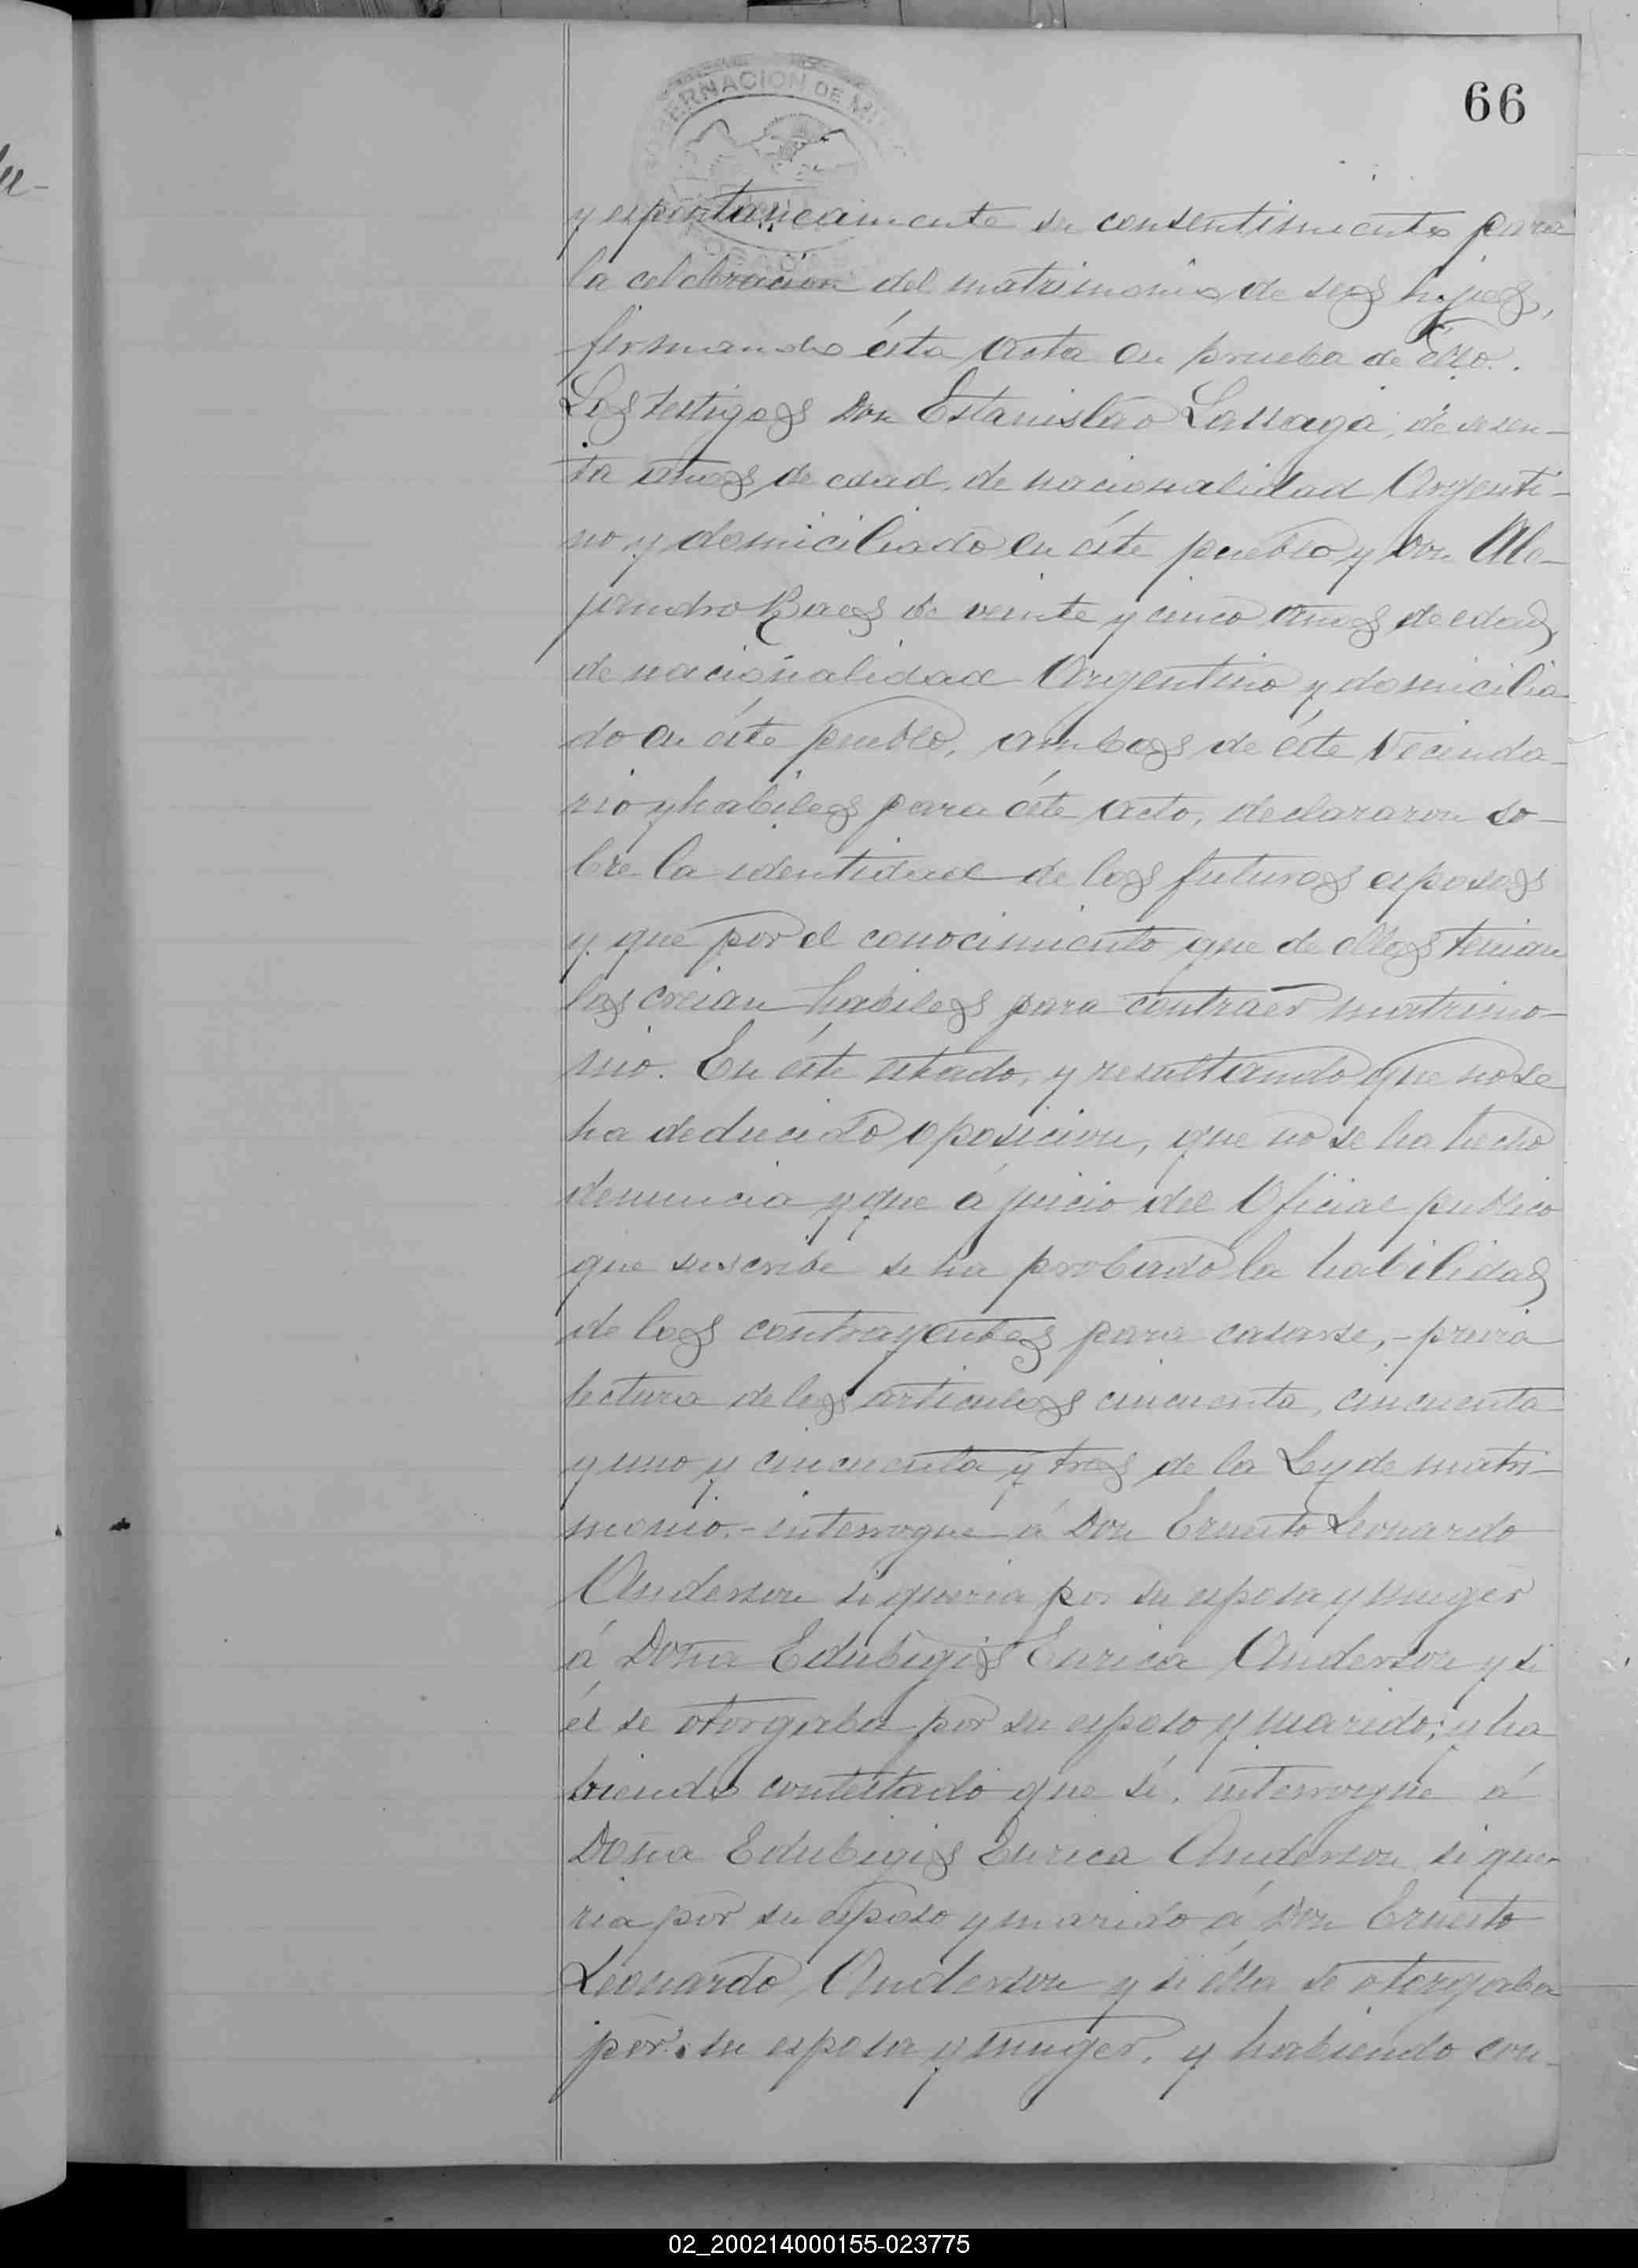 66
GOBERNACION DE MI
y espontaneamente su consentimiento para
la celebracion del matrimonio de sus hijos,
firmando ésta acta en prueba de ello.
Los testigos Don Estanislao Lassaga, de sesen-
ta años de edad, de nacionalidad Argenti-
no y domiciliado en éste pueblo y Don Ale-
jandro Baes de veinte y cinco años de edad,
de nacionalidad Argentino y domicilia
do en éste pueblo, ambos de éste Vecinda-
rio y habiles para éste acto, declararon so-
bre la identidad de los futuros esposos
y que por el conocimiento que de ellos tenian
los creian habiles para contraer matrimo-
nio. En éste estado, y resultando que no se
ha deducido oposicion, que no se ha hecho
denuncia y que á juicio del Oficial publico
que suscribe se ha probado la habilidad
de los contrayentes para casarse,- previa
lectura de los articulos cincuenta, cincuenta
y uno y cincuenta y tres de la Ley de matri-
monio.- interrogué á Don Ernesto Leonardo
Anderson si queria por su esposa y muger
á Doña Edubigis Enrica Anderson y si
él se otorgaba por su esposo y marido; y ha
biendo contestado que sí, interrogué á
Doña Edubigis Enrica Anderson si que-
ria por su esposo y marido á Don Ernesto
Leonardo Anderson y si élla se otorgaba
por su esposa y muger, y habiendo con-
02_200214000155-023775